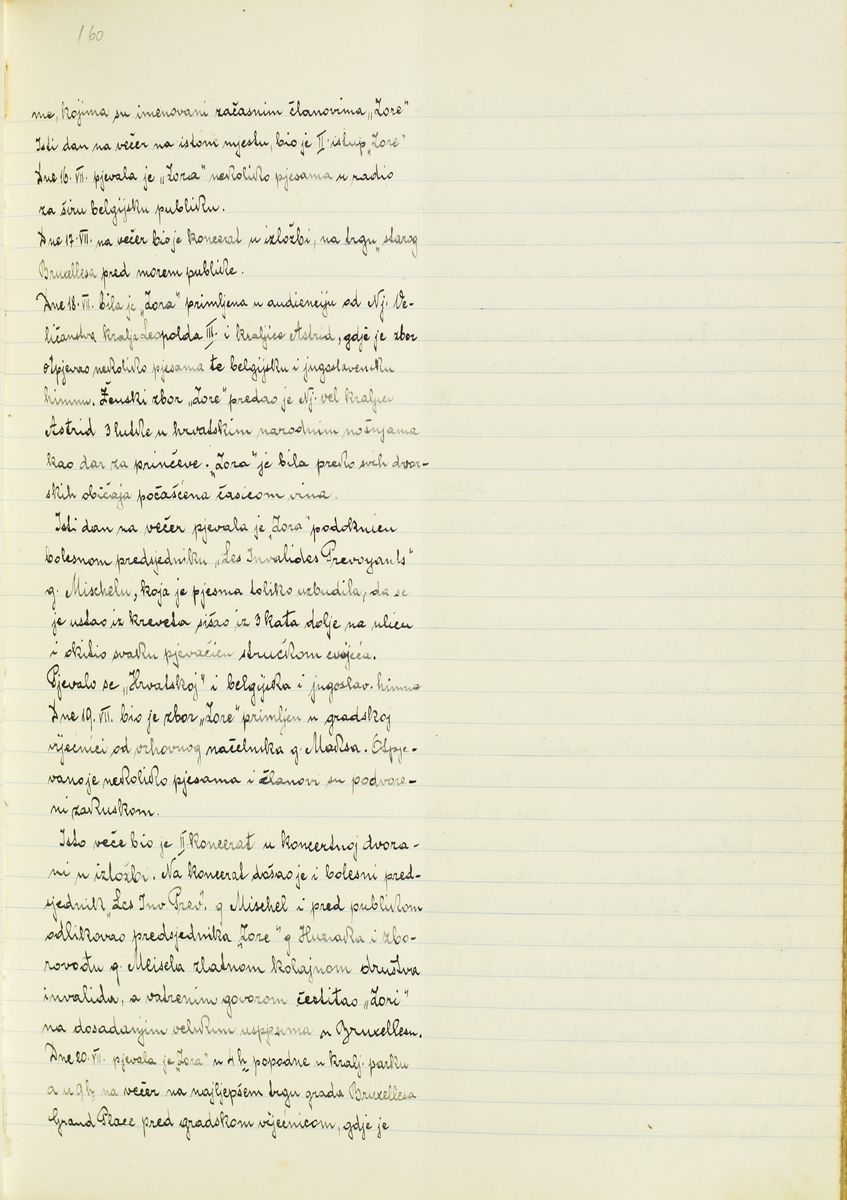 160
me, kojima su imenovani začasnim članovima „Zore"
Isti dan na večer na istom mjestu, bio je II. istup „Zore"
Dne 16. VII. pjevala je „Zora" nekoliko pjesama u radio
za širu belgijsku publiku.
Dne 17. VII. na večer bio je koncerat u izložbi, na trgu „starog
Bruxellesa pred morem publike.
Dne 18. VII. bila je „Zora" primljena u audienciju od Nj. Ve-
ličanstva kralja Leopolda III. i kraljice Astrid, gdje je zbor
otpjevao nekoliko pjesama te belgijsku i jugoslavensku
himnu. Ženski zbor „Zore" predao je Nj. vel kraljici
Astrid 3 lutke u hrvatskim narodnim nošnjama
kao dar za prinčeve. „Zora" je bila preko svih dvor-
skih običaja počašćena čašicom vina.
Isti dan na večer pjevala je „Zora" podoknicu
bolesnom predsjedniku „Les Invalides Prevoyants"
g. Mischelu, koja je pjesma toliko uzbudila, da se
je ustao iz kreveta sišao iz 3 kata dolje na ulicu
i okitio svaku pjevačicu stručkom cvijeća.
Pjevalo se „Hrvatskoj" i belgijska i jugoslav. himna
Dne 19. VII. bio je zbor „Zore" primljen u gradskoj
vijećnici od vrhovnog načelnika g. Maksa. Otpje-
vano je nekoliko pjesama i članovi su podvore-
ni zakuskom.
Isto veče bio je II. koncerat u koncertnoj dvora-
ni u izložbi. Na koncerat došao je i bolesni pred-
sjednik „Les Inv Prev". g Mischel i pred publikom
odlikovao predsjednika „Zore" g Huzjaka i zbo-
rovođu g. Meisela zlatnom kolajnom društva
invalida, a vatrenim govorom čestitao „Zori"
na dosadanjim velikim uspjesima u Bruxellesu.
Dne 20. VII. pjevala je „Zora" u 4 h popodne u kralj. parku
a u 9 h na večer na najljepšem trgu grada Bruxellesa
Grand Place, pred gradskom vijećnicom, gdje je